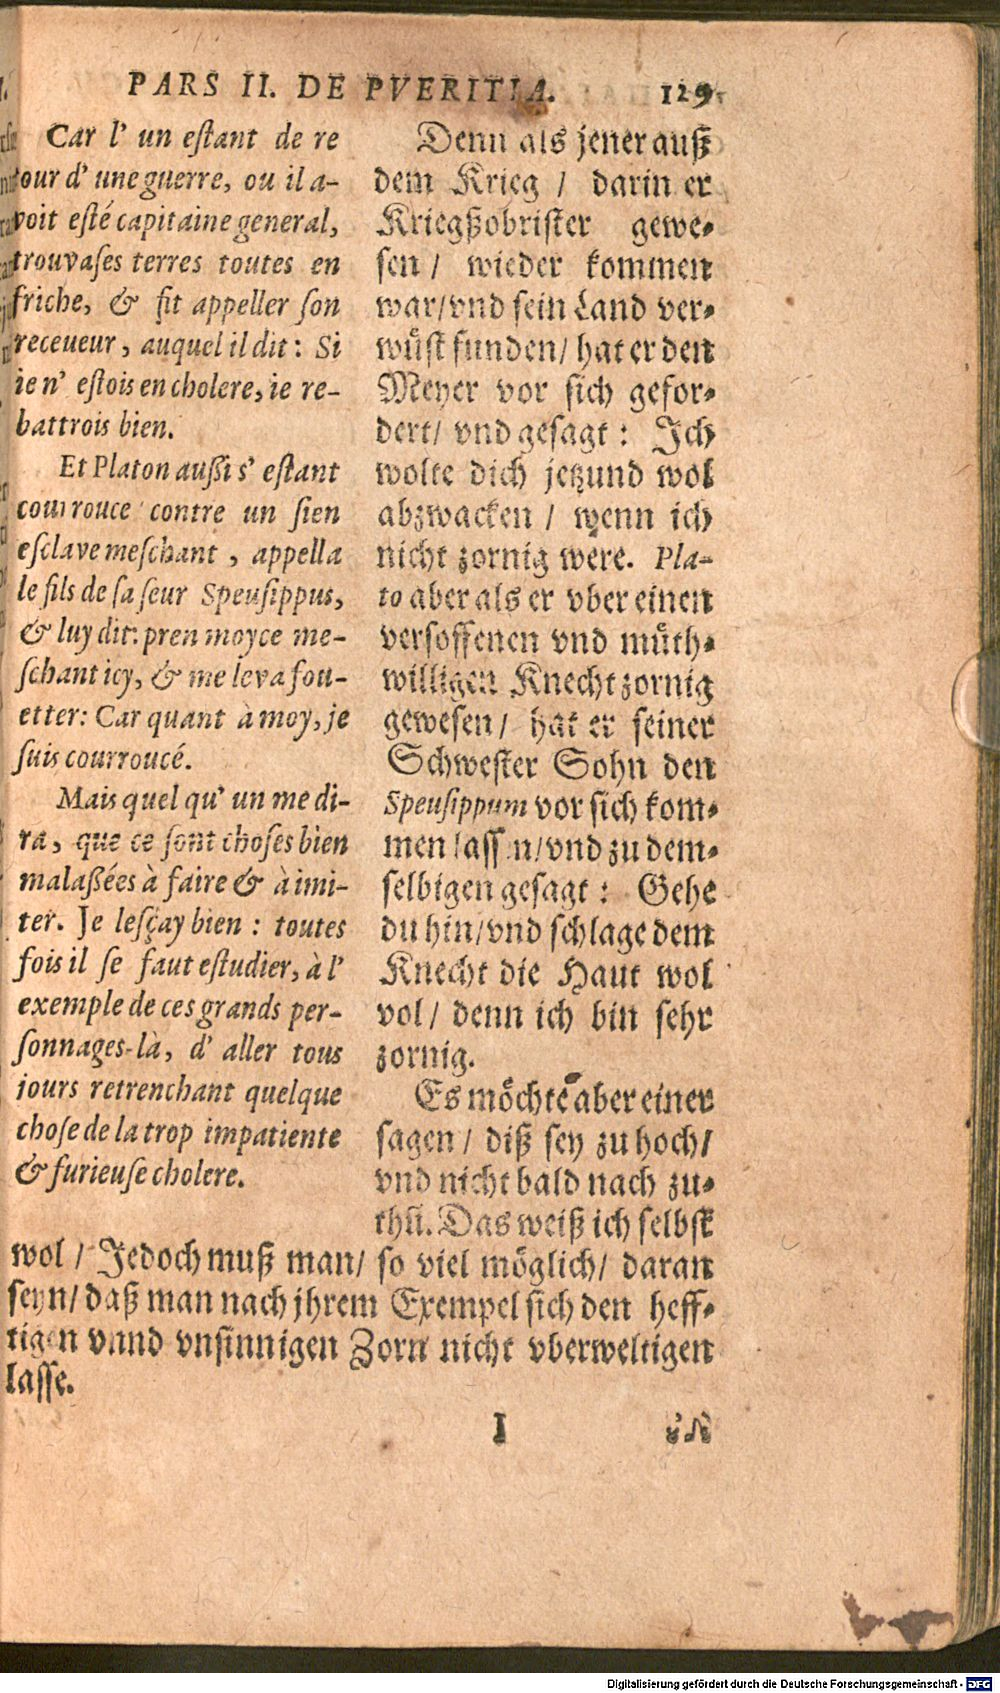 PARS II. DE PVERITIA. 129
Car l' un eſtant de re
tour d' une guerre, ou il a-
voit eſté capitaine general,
trouva ſes terres toutes en
friche, & fit appeller ſon
receueur, auquel il dit: Si
ie n' eſtois en cholere, ie re-
battrois bien.
Et Platon außi s' eſtant
courrouce contre un ſien
eſclave meſchant, appella
le fils de ſa ſeur Speuſippus,
& luy dit: pren moy ce me-
ſchant icy, & me le va fou-
etter: Car quant à moy, je
ſuis courroucé.
Mais quel qu' un me di-
ra, que ce ſont choſes bien
malaßées à faire & à imi-
ter. Je le ſçay bien: toutes
fois il ſe faut eſtudier, à l'
exemple de ces grands per-
ſonnages-là, d' aller tous
jours retrenchant quelque
choſe de la trop impatiente
& furieuſe cholere.
Denn als jener auß
dem Krieg / darin er
Kriegßobriſter gewe-
ſen / wieder kommen
war / vnd ſein Land ver-
wuͤſt funden / hat er den
Meyer vor ſich gefor-
dert / vnd geſagt: Ich
wolte dich jetzund wol
abzwacken / wenn ich
nicht zornig were. Pla-
to aber als er vber einen
verſoffenen vnd muͤth-
willigen Knecht zornig
geweſen / hat er ſeiner
Schweſter Sohn den
Speuſippum vor ſich kom-
men laſſen / vnd zu dem-
ſelbigen geſagt: Gehe
du hin / vnd ſchlage dem
Knecht die Haut wol
vol / denn ich bin ſehr
zornig.
Es moͤchte aber einer
ſagen / diß ſey zu hoch /
vnd nicht bald nach zu-
thū. Das weiß ich ſelbſt
wol / Jedoch muß man / ſo viel moͤglich / daran
ſeyn / daß man nach jhrem Exempel ſich den heff-
tigen vnnd vnſinnigen Zorn nicht vberweltigen
laſſe.
I
Digitalisierung gefördert durch die Deutsche Forschungsgemeinschaft - DFG